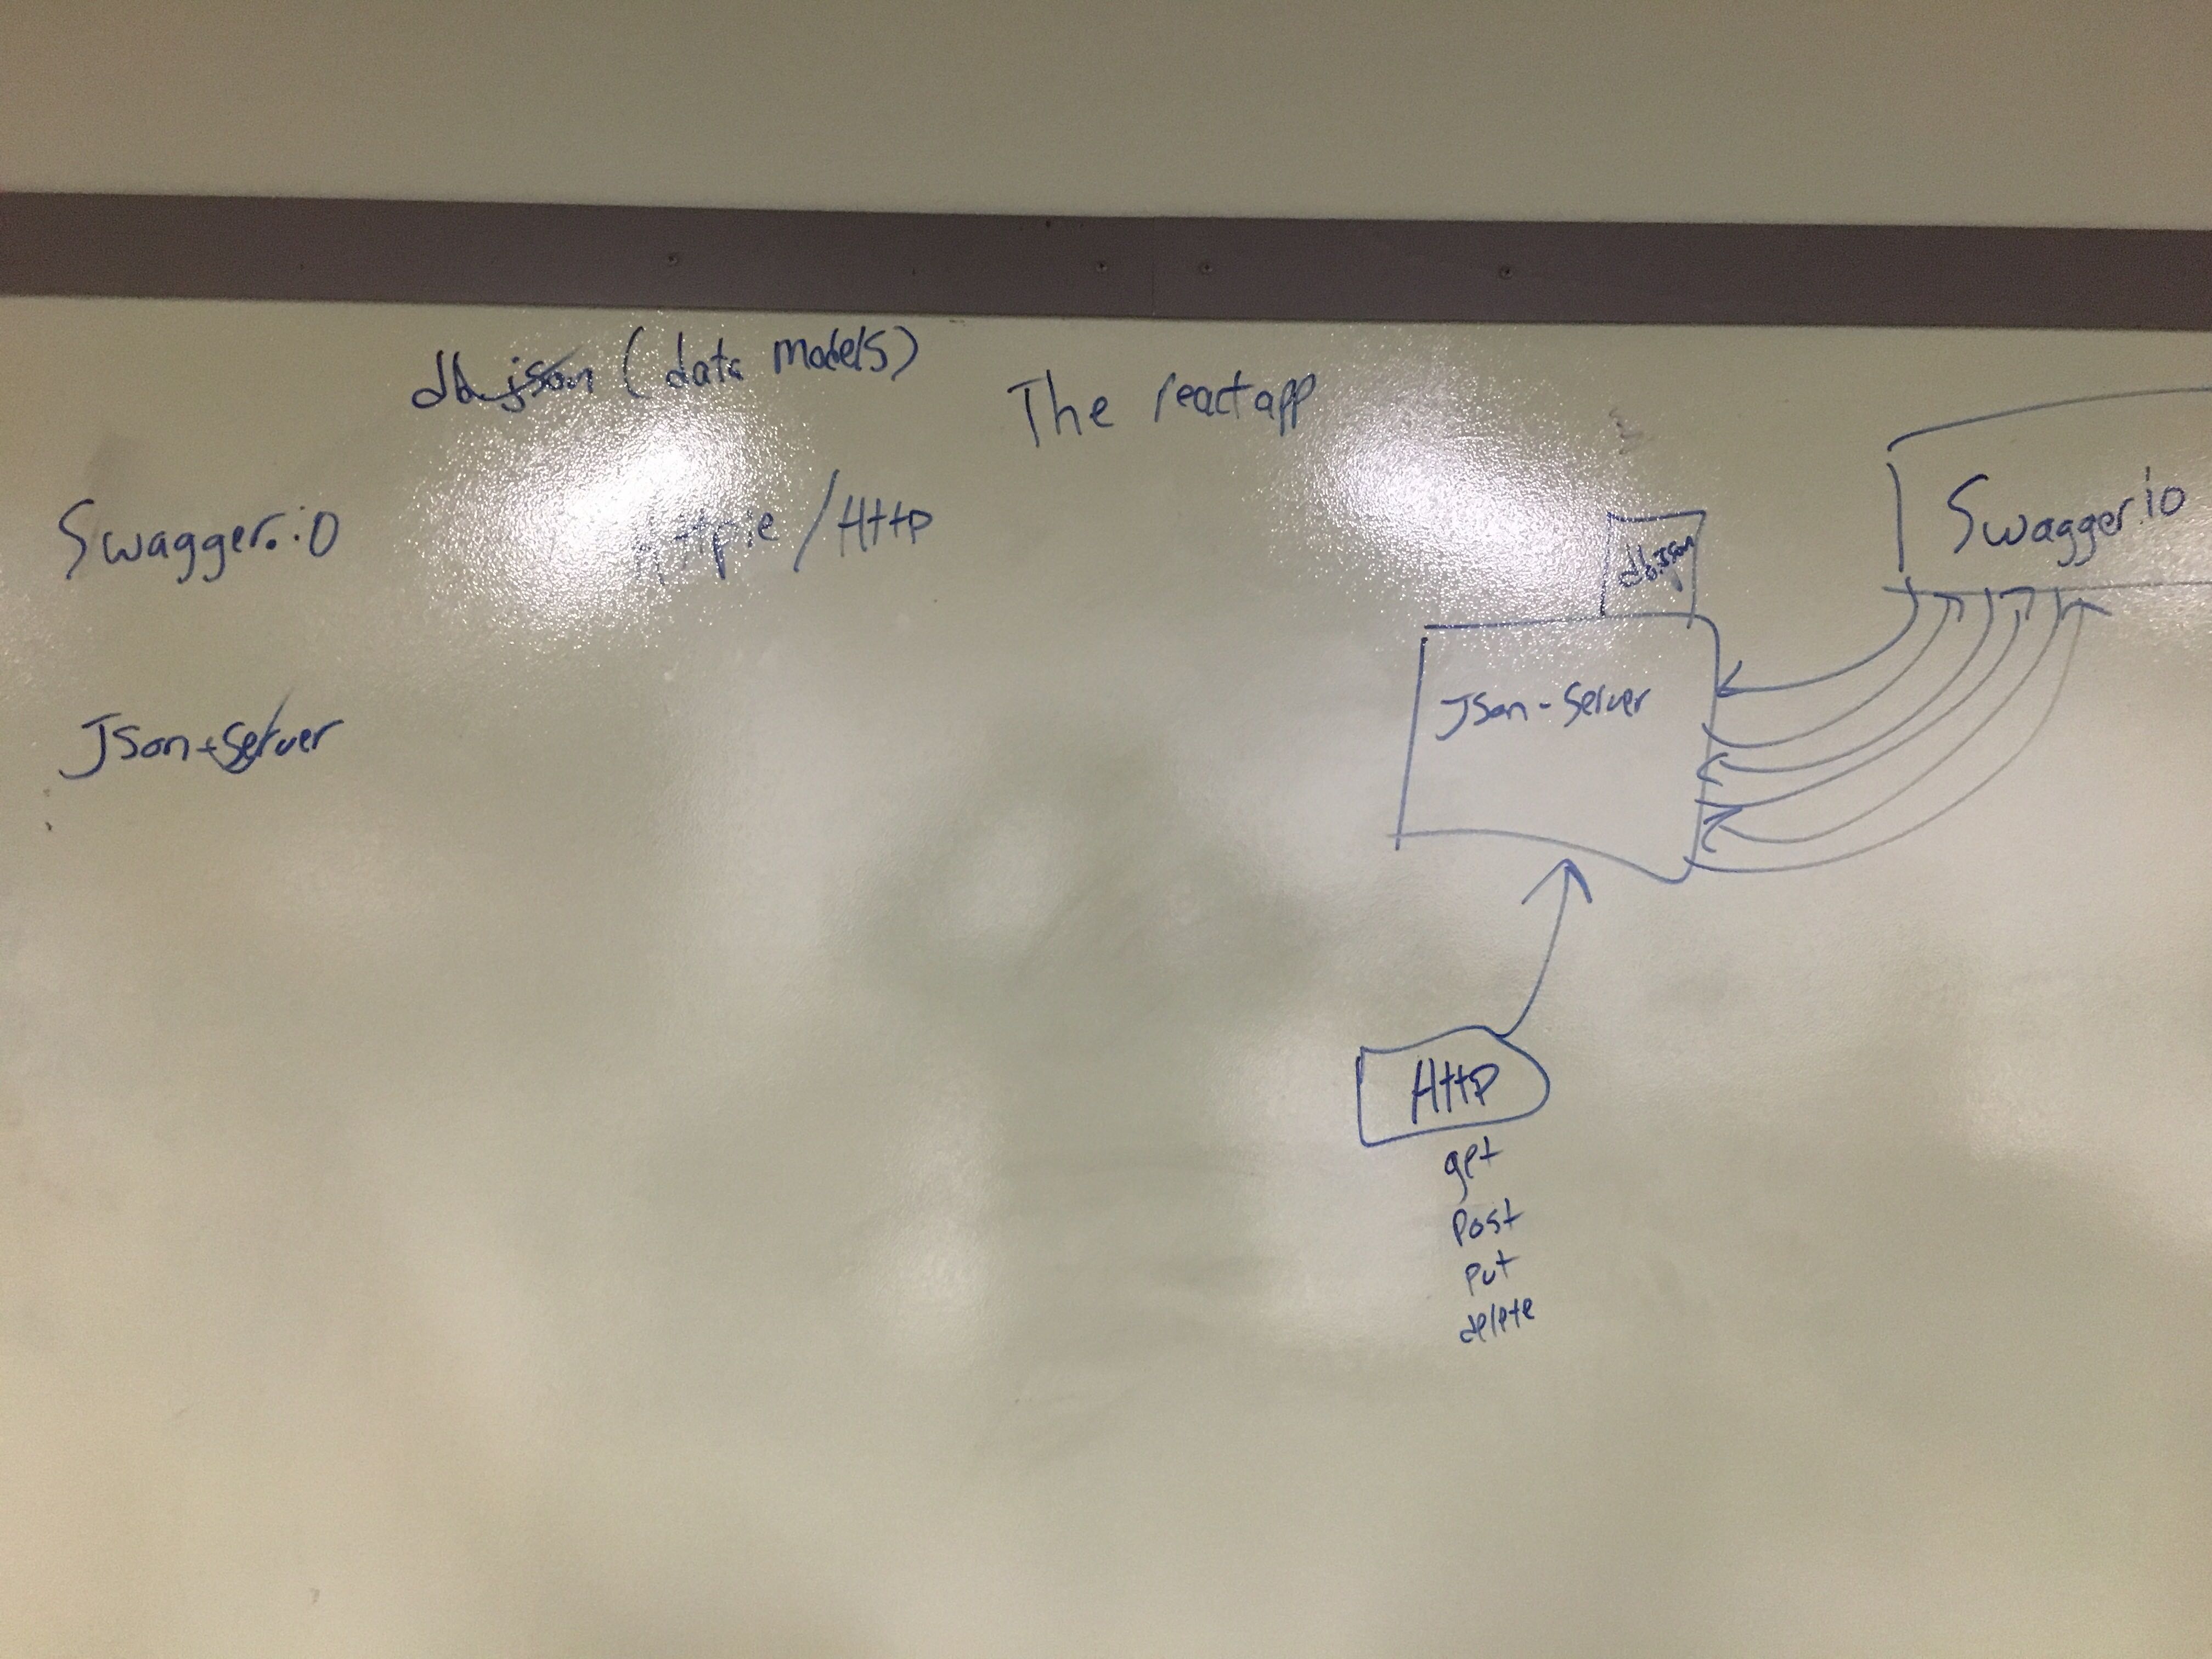 db.json (data models)
The react app
Swagger.io
Httpie / HttP
Json-Server
db.json
Swagger.io
Json-Server
HttP
get
Post
Put
delete